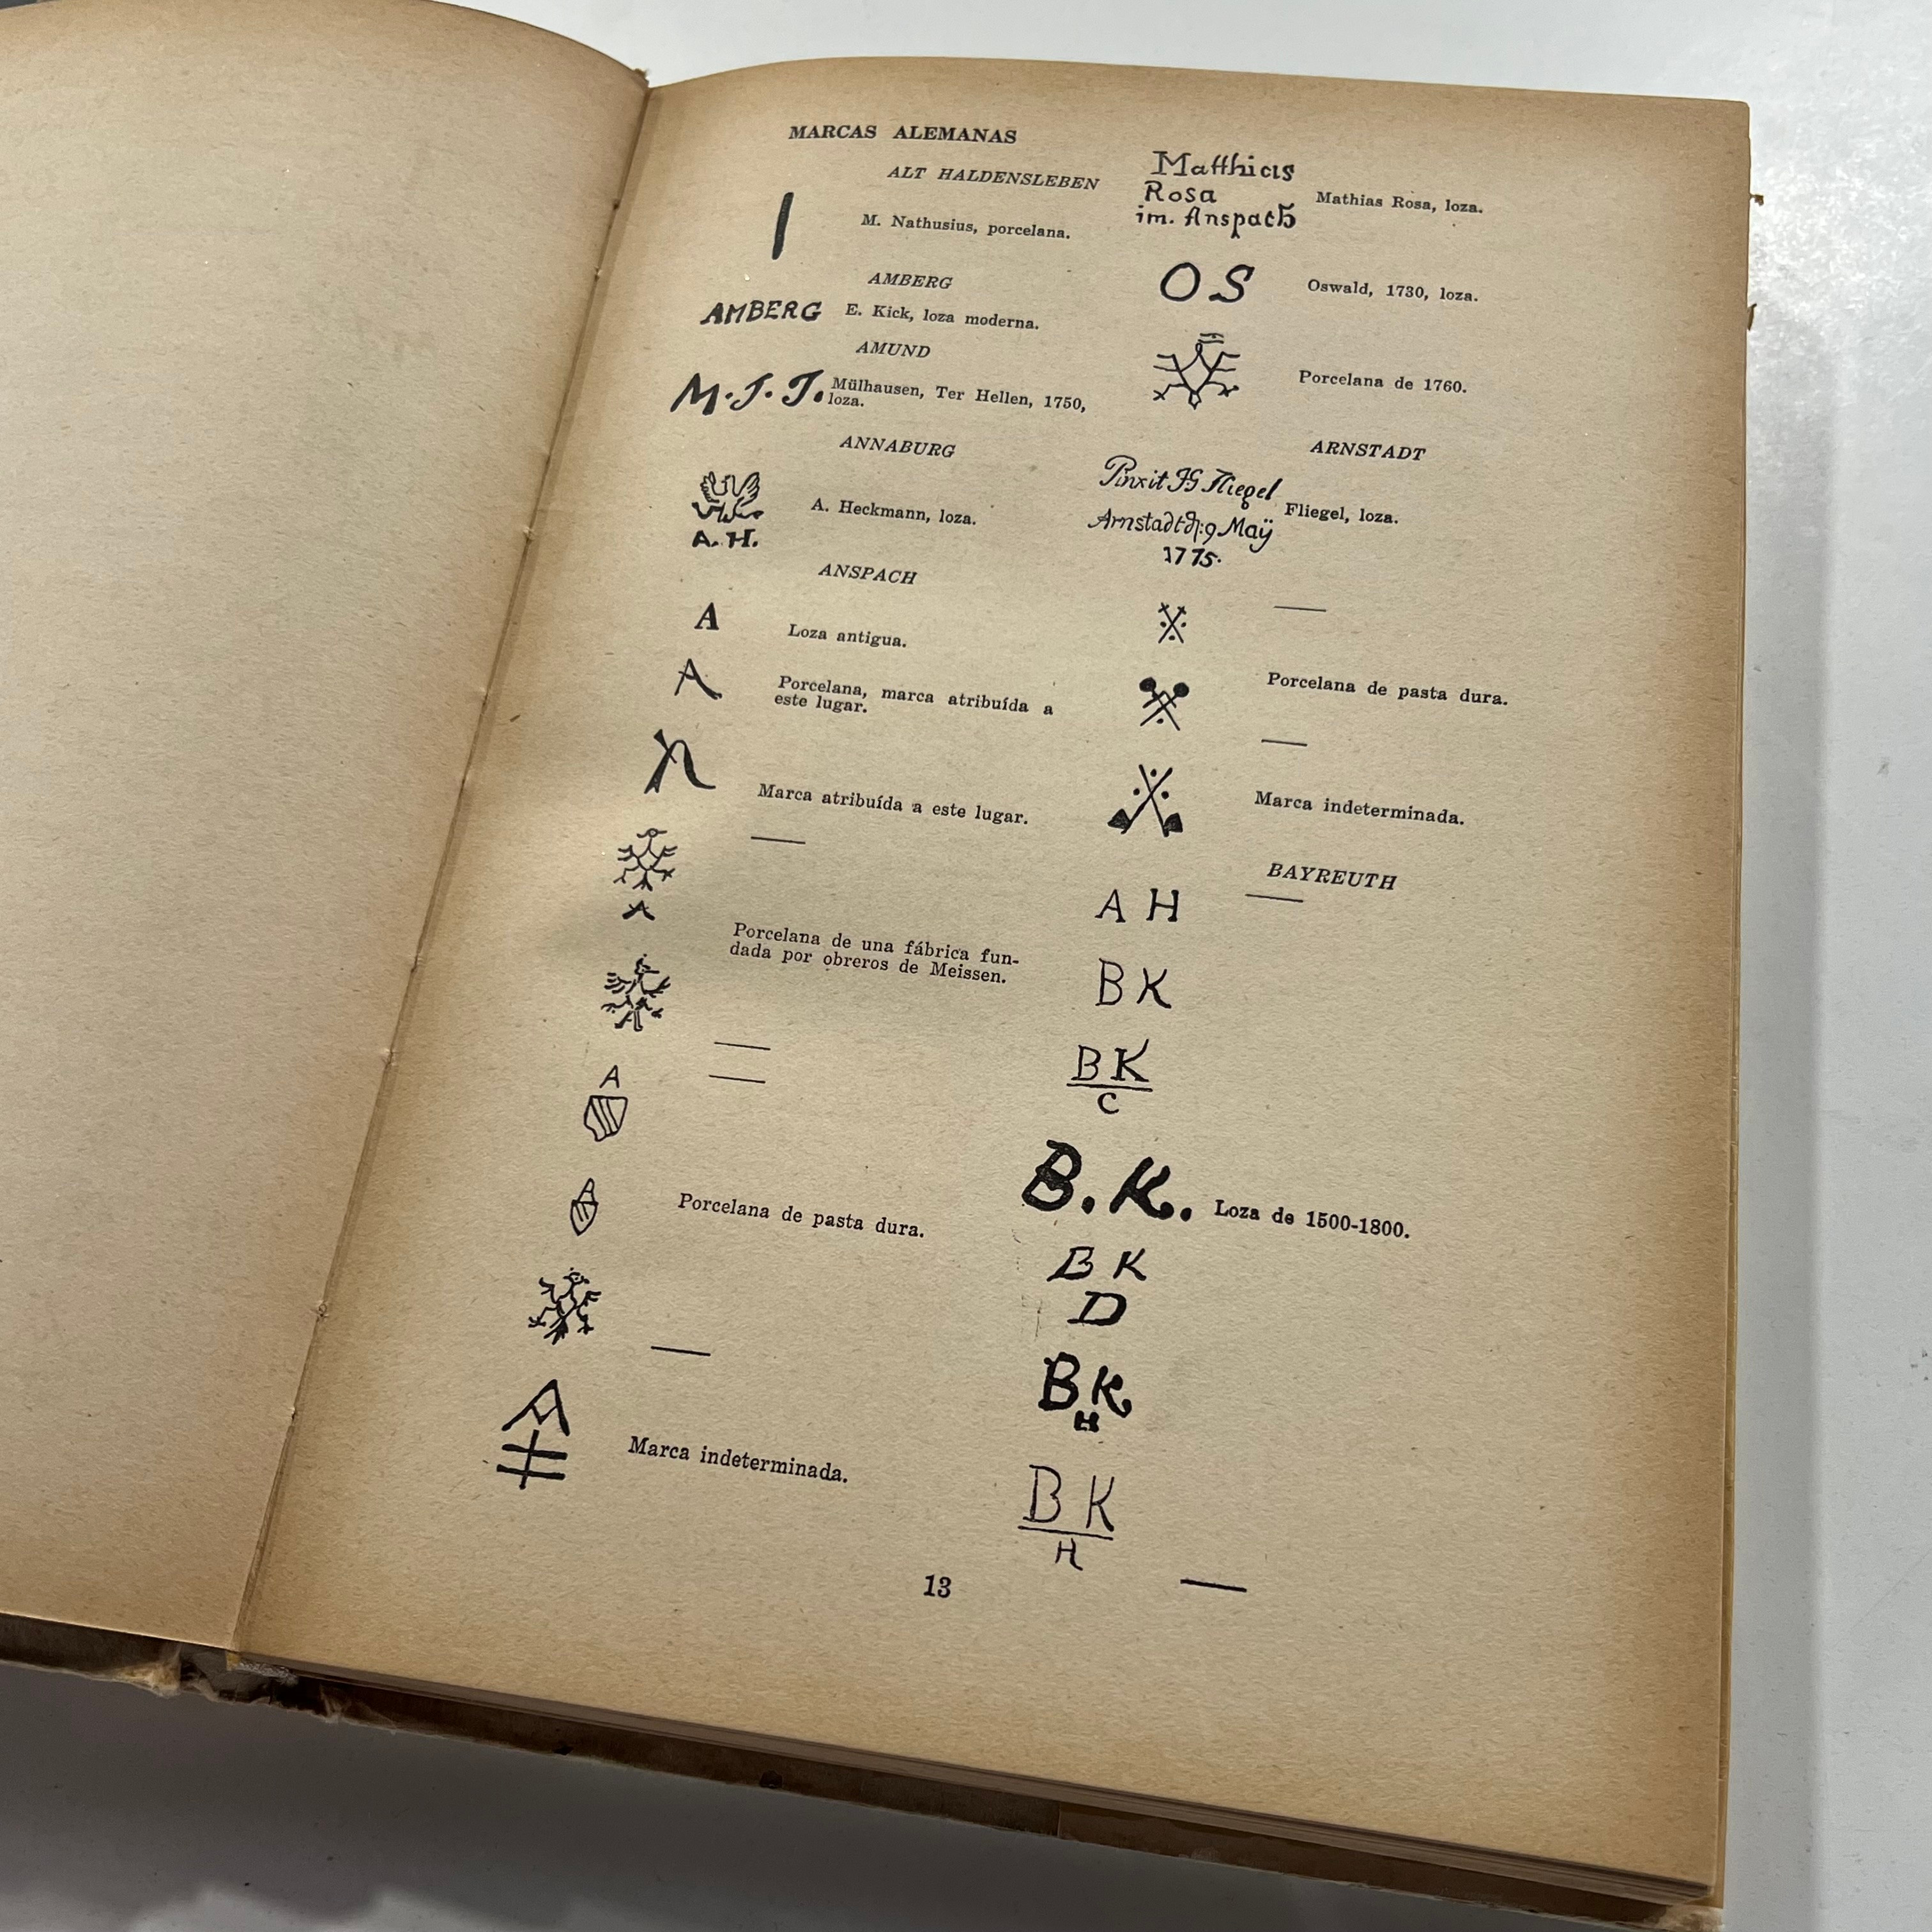 MARCAS ALEMANAS
ALT HALDENSLEBEN
M. Nathusius, porcelana.
AMBERG
AMBERG E. Kick, loza moderna.
AMUND
M.J.J. Mülhausen, Ter Hellen, 1750,
loza.
ANNABURG
A. Heckmann, loza.
A. H.
ANSPACH
A Loza antigua.
A Porcelana, marca atribuída a
este lugar.
Marca atribuída a este lugar.
A
Porcelana de una fábrica fun-
dada por obreros de Meissen.
A
Porcelana de pasta dura.
Marca indeterminada.
Matthias
Rosa
im. Anspach
Mathias Rosa, loza.
O S Oswald, 1730, loza.
Porcelana de 1760.
ARNSTADT
Pinxit Fliegel
Arnstadt d: 9 Maÿ
1775.
Fliegel, loza.
Porcelana de pasta dura.
Marca indeterminada.
BAYREUTH
A H
B K
B K
C
B. K. Loza de 1500-1800.
B K
D
B K
H
B K
H
13